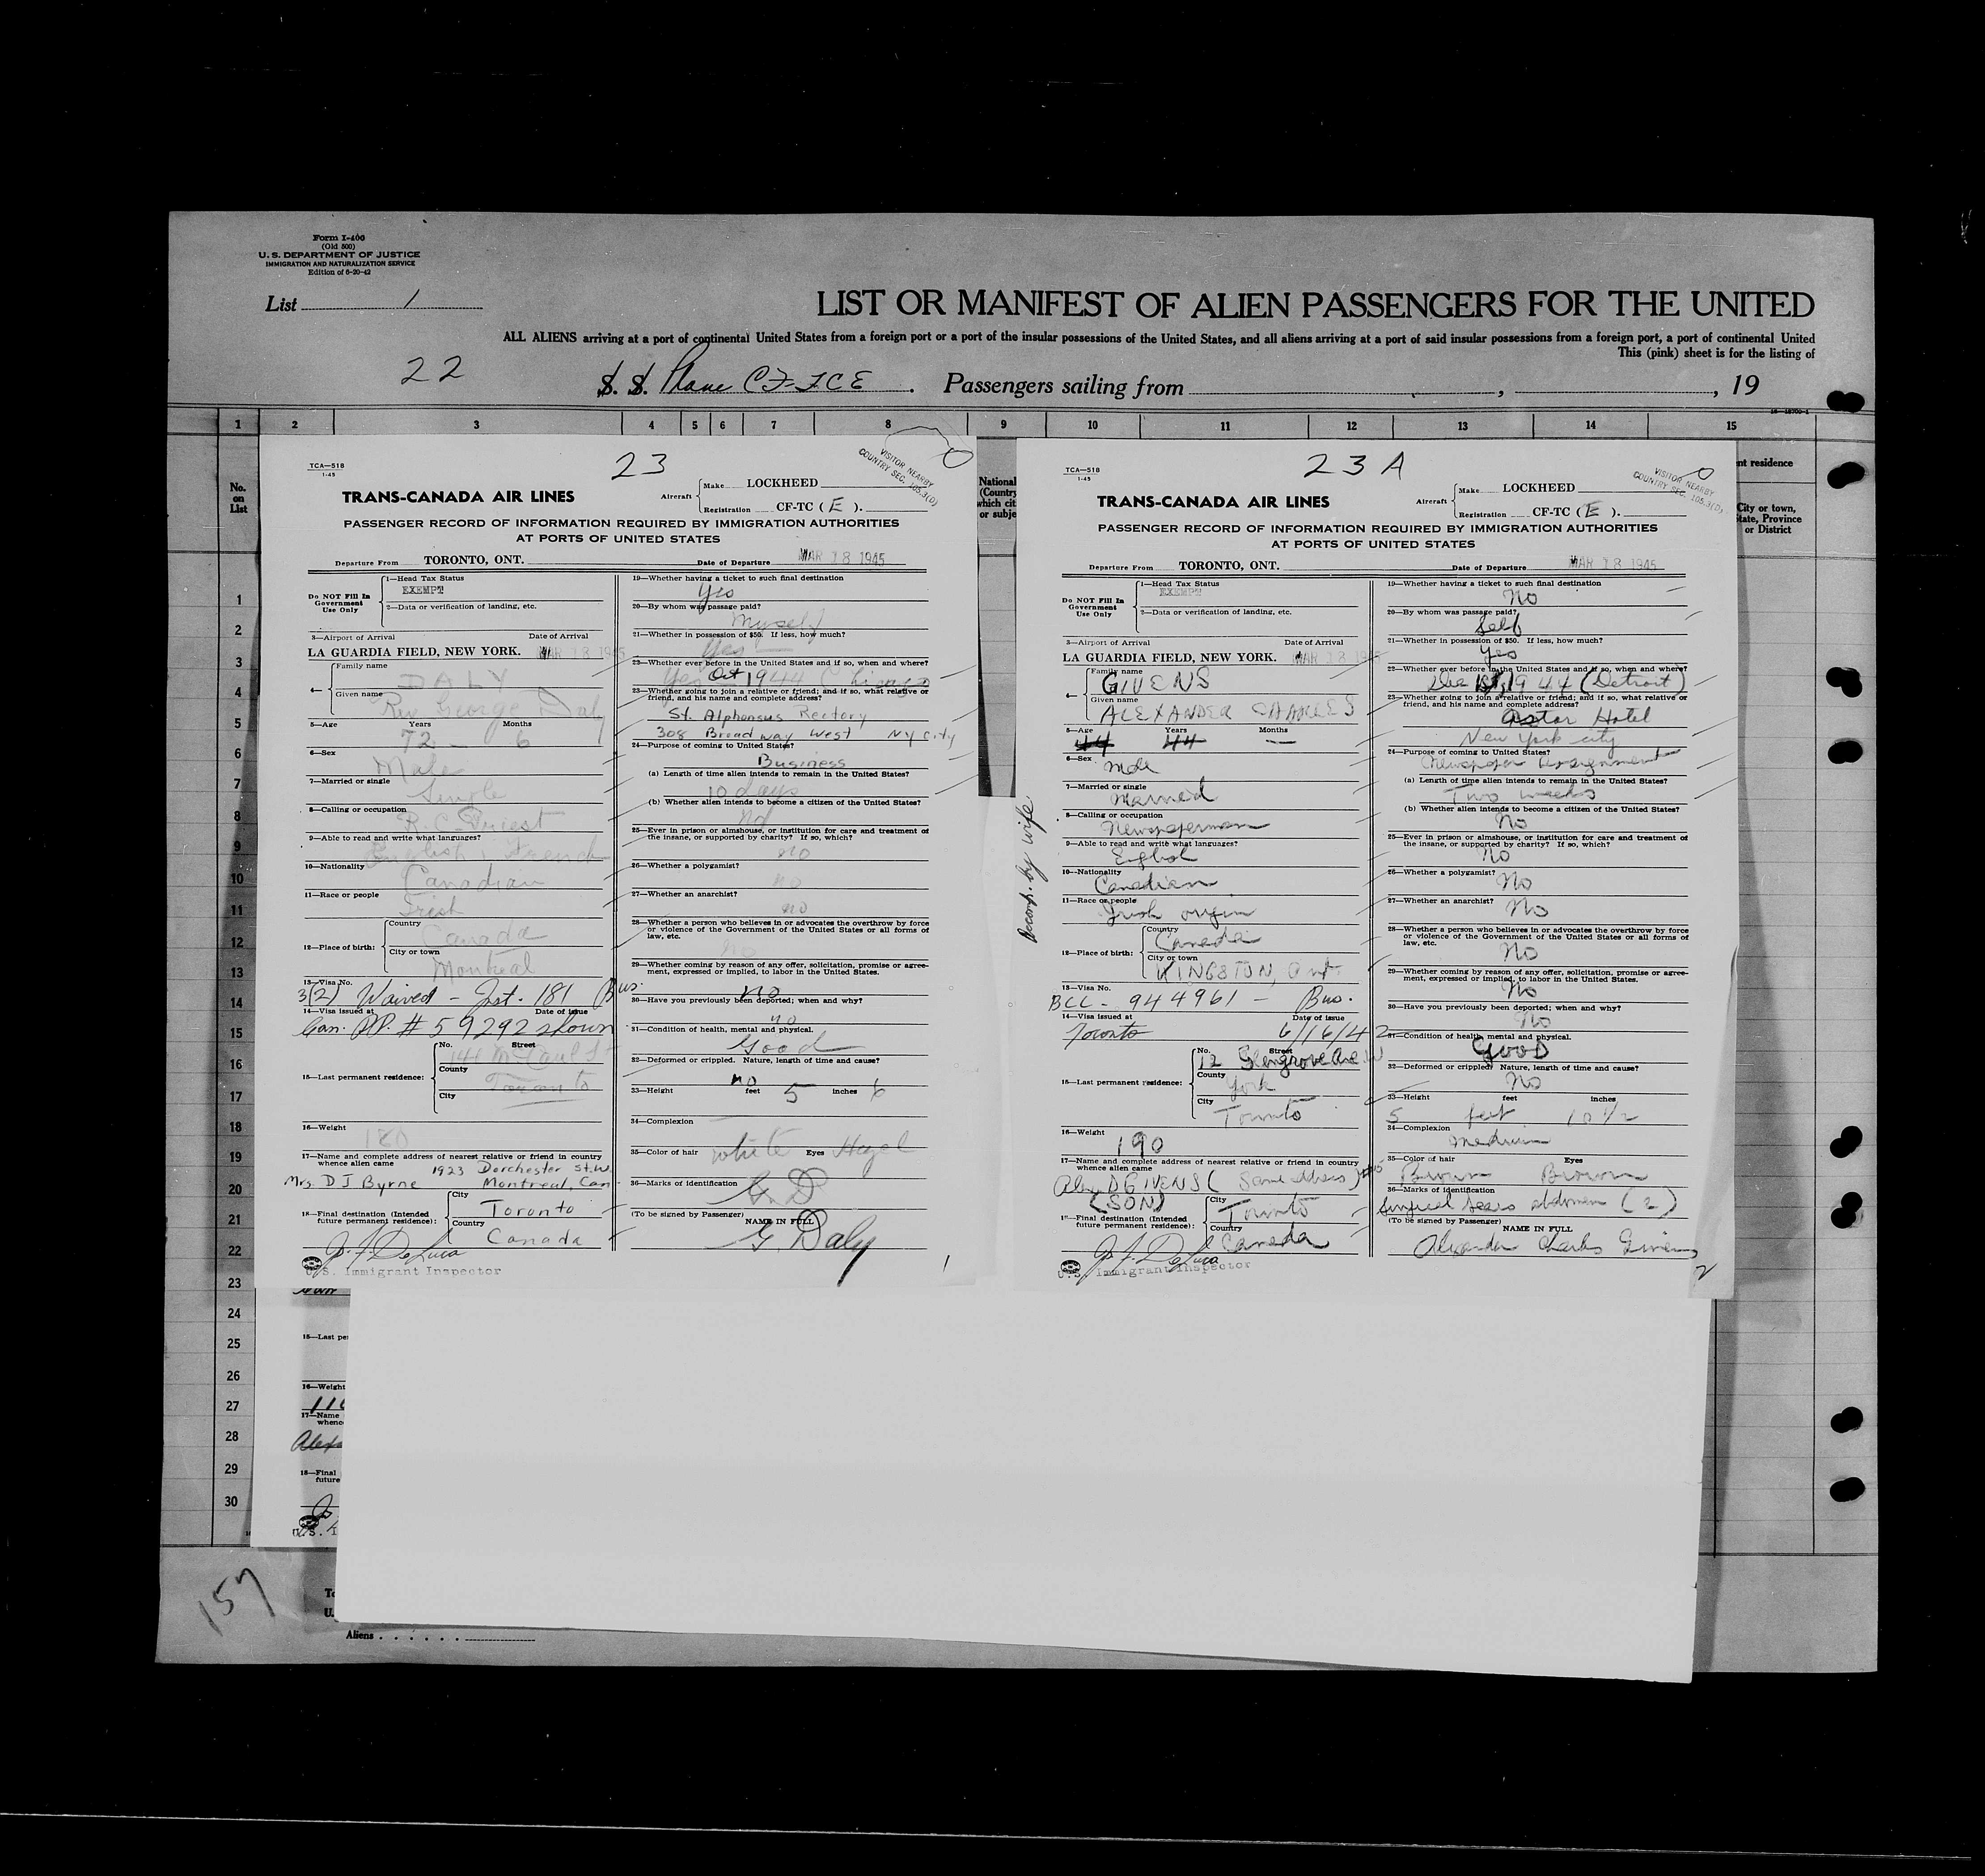 Form I-406
(Old 500)
U. S. DEPARTMENT OF JUSTICE
IMMIGRATION AND NATURALIZATION SERVICE
Edition of 6-20-42
List 1
LIST OR MANIFEST OF ALIEN PASSENGERS FOR THE UNITED
ALL ALIENS arriving at a port of continental United States from a foreign port or a port of the insular possessions of the United States, and all aliens arriving at a port of said insular possessions from a foreign port, a port of continental United
This (pink) sheet is for the listing of
22
S. S. Plane CF-TCE . Passengers sailing from , , 19
1 2 3 4 5 6 7 8 9 10 11 12 13 14 15
No.
on
List
National
(Country
which cit
or subje
nt residence
City or town,
State, Province
or District
1
2
3
4
5
6
7
8
9
10
11
12
13
14
15
16
17
18
19
20
21
22
23
24
25
26
27
28
29
30
TCA—518
1-45
23
VISITOR NEARBY
COUNTRY SEC. 105.3(D)
TRANS-CANADA AIR LINES
Aircraft
Make LOCKHEED
Registration CF-TC ( E ).
PASSENGER RECORD OF INFORMATION REQUIRED BY IMMIGRATION AUTHORITIES
AT PORTS OF UNITED STATES
Departure From TORONTO, ONT. Date of Departure MAR 18 1945
Do NOT Fill In
Government
Use Only
1—Head Tax Status
EXEMPT
2—Data or verification of landing, etc.
3—Airport of Arrival Date of Arrival
LA GUARDIA FIELD, NEW YORK. MAR 18 1945
4— Family name
DALY
Given name
Rev George Daly
5—Age Years Months
72 6
6—Sex
Male
7—Married or single
Single
8—Calling or occupation
R.C. Priest
9—Able to read and write what languages?
English, French
10—Nationality
Canadian
11—Race or people
Irish
12—Place of birth:
Country
Canada
City or town
Montreal
13—Visa No.
3(2) Waived - Inst. 181 Bus.
14—Visa issued at Date of issue
Can. P.P. # 59292 shown
15—Last permanent residence:
No. Street
141 McCaul St
County
Toronto
City
16—Weight
180
17—Name and complete address of nearest relative or friend in country
whence alien came
1923 Dorchester St. W.
Mrs. D J Byrne Montreal, Can
18—Final destination (Intended
future permanent residence):
City
Toronto
Country
Canada
J. J. DeLuca
U.S. Immigrant Inspector
19—Whether having a ticket to such final destination
Yes
20—By whom was passage paid?
Myself
21—Whether in possession of $50. If less, how much?
Yes
22—Whether ever before in the United States and if so, when and where?
Yes Oct 1944 Chicago
23—Whether going to join a relative or friend; and if so, what relative or
friend, and his name and complete address?
St. Alphonsus Rectory
308 Broadway West NY City
24—Purpose of coming to United States?
Business
(a) Length of time alien intends to remain in the United States?
10 days
(b) Whether alien intends to become a citizen of the United States?
No
25—Ever in prison or almshouse, or institution for care and treatment of
the insane, or supported by charity? If so, which?
no
26—Whether a polygamist?
no
27—Whether an anarchist?
no
28—Whether a person who believes in or advocates the overthrow by force
or violence of the Government of the United States or all forms of
law, etc.
no
29—Whether coming by reason of any offer, solicitation, promise or agree-
ment, expressed or implied, to labor in the United States.
no
30—Have you previously been deported; when and why?
no
31—Condition of health, mental and physical.
Good
32—Deformed or crippled. Nature, length of time and cause?
no
33—Height feet 5 inches 6
34—Complexion
35—Color of hair white Eyes Hazel
36—Marks of identification
G. D
(To be signed by Passenger) NAME IN FULL
G. Daly
1
TCA—518
1-45
23 A
VISITOR NEARBY
COUNTRY SEC. 105.3(D)
TRANS-CANADA AIR LINES
Aircraft
Make LOCKHEED
Registration CF-TC ( E ).
PASSENGER RECORD OF INFORMATION REQUIRED BY IMMIGRATION AUTHORITIES
AT PORTS OF UNITED STATES
Departure From TORONTO, ONT. Date of Departure MAR 18 1945
Do NOT Fill In
Government
Use Only
1—Head Tax Status
EXEMPT
2—Data or verification of landing, etc.
3—Airport of Arrival Date of Arrival
LA GUARDIA FIELD, NEW YORK. MAR 18 1945
4— Family name
GIVENS
Given name
ALEXANDER CHARLES
5—Age Years Months
44 44 —
6—Sex
male
7—Married or single
Married
8—Calling or occupation
Newspaperman
9—Able to read and write what languages?
English
10—Nationality
Canadian
11—Race or people
Irish origin
12—Place of birth:
Country
Canada
City or town
KINGSTON, Ont.
13—Visa No.
BCC - 944961 - Bus.
14—Visa issued at Date of issue
Toronto 6/16/42
15—Last permanent residence:
No. Street
12 Glengrove Ave W
County
York
City
Toronto
16—Weight
190
17—Name and complete address of nearest relative or friend in country
whence alien came
Alex D GIVENS (Same address) #15
(SON)
18—Final destination (Intended
future permanent residence):
City
Toronto
Country
Canada
J. J. DeLuca
U.S. Immigrant Inspector
19—Whether having a ticket to such final destination
No
20—By whom was passage paid?
Self
21—Whether in possession of $50. If less, how much?
Yes
22—Whether ever before in the United States and if so, when and where?
Dec 1st, 1944 (Detroit)
23—Whether going to join a relative or friend; and if so, what relative or
friend, and his name and complete address?
Astor Hotel
New York city
24—Purpose of coming to United States?
Newspaper Assignment
(a) Length of time alien intends to remain in the United States?
Two weeks
(b) Whether alien intends to become a citizen of the United States?
No
25—Ever in prison or almshouse, or institution for care and treatment of
the insane, or supported by charity? If so, which?
No
26—Whether a polygamist?
No
27—Whether an anarchist?
No
28—Whether a person who believes in or advocates the overthrow by force
or violence of the Government of the United States or all forms of
law, etc.
No
29—Whether coming by reason of any offer, solicitation, promise or agree-
ment, expressed or implied, to labor in the United States.
No
30—Have you previously been deported; when and why?
No
31—Condition of health, mental and physical.
GOOD
32—Deformed or crippled? Nature, length of time and cause?
No
33—Height feet inches
5 feet 10 1/2
34—Complexion
medium
35—Color of hair Eyes
Brown Brown
36—Marks of identification
Surgical scars abdomen (2)
(To be signed by Passenger) NAME IN FULL
Alexander Charles Givens
2
Accomp. by wife.
15—Last pe
16—Weight
116
17—Name
whence
Alex
18—Final
future
U.S. I
157
To
U.
Aliens